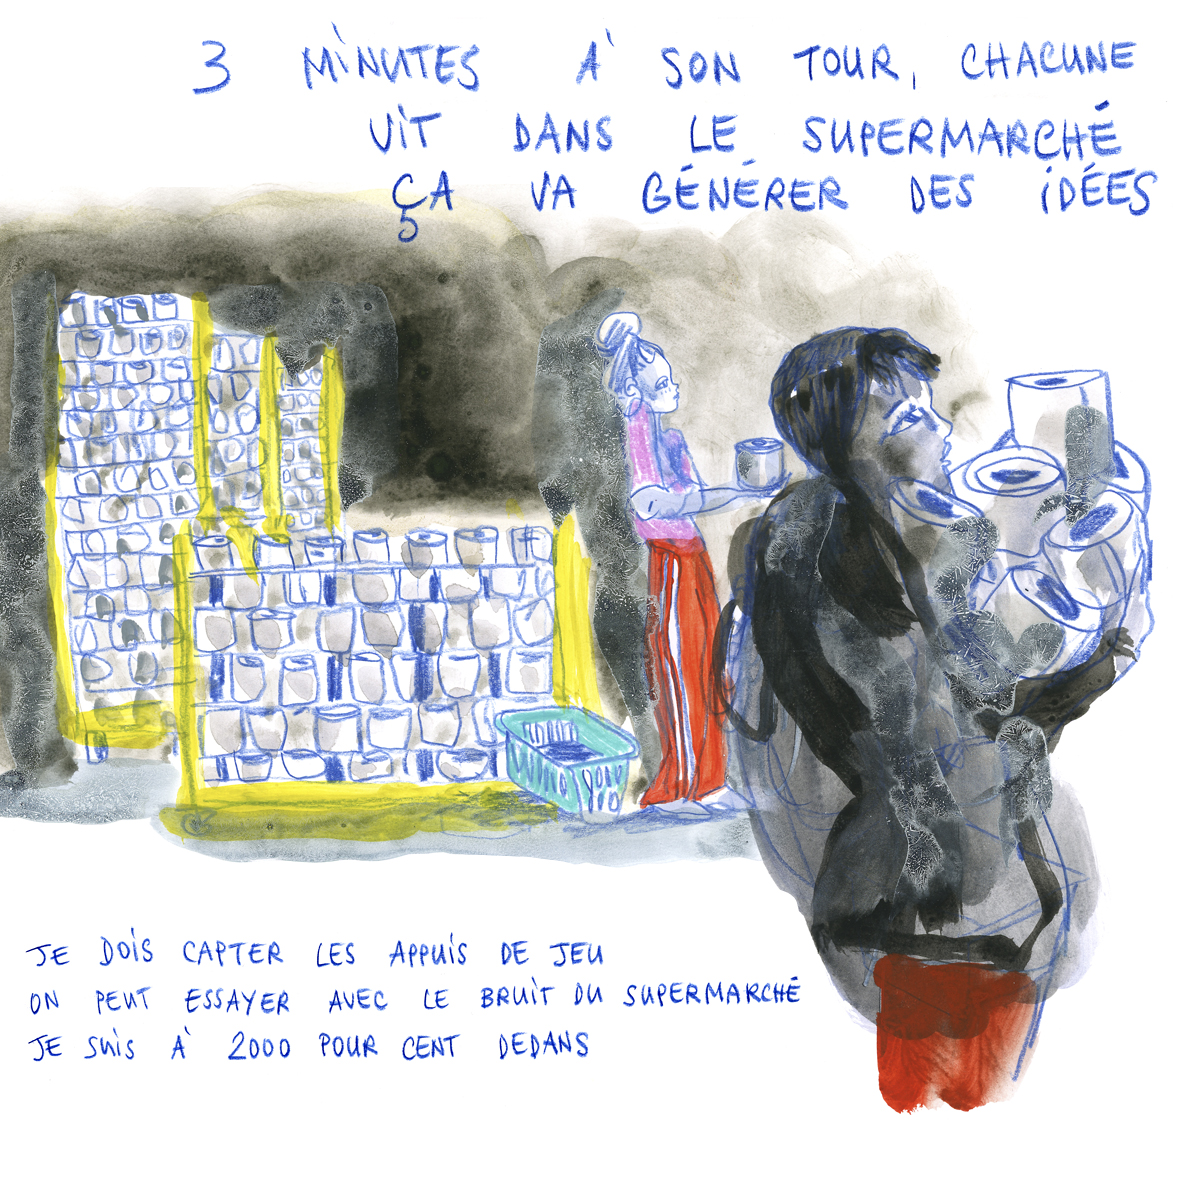 3 MINUTES À SON TOUR, CHACUNE
VIT DANS LE SUPERMARCHÉ
ÇA VA GÉNÉRER DES IDÉES
JE DOIS CAPTER LES APPUIS DE JEU
ON PEUT ESSAYER AVEC LE BRUIT DU SUPERMARCHÉ
JE SUIS À 2000 POUR CENT DEDANS